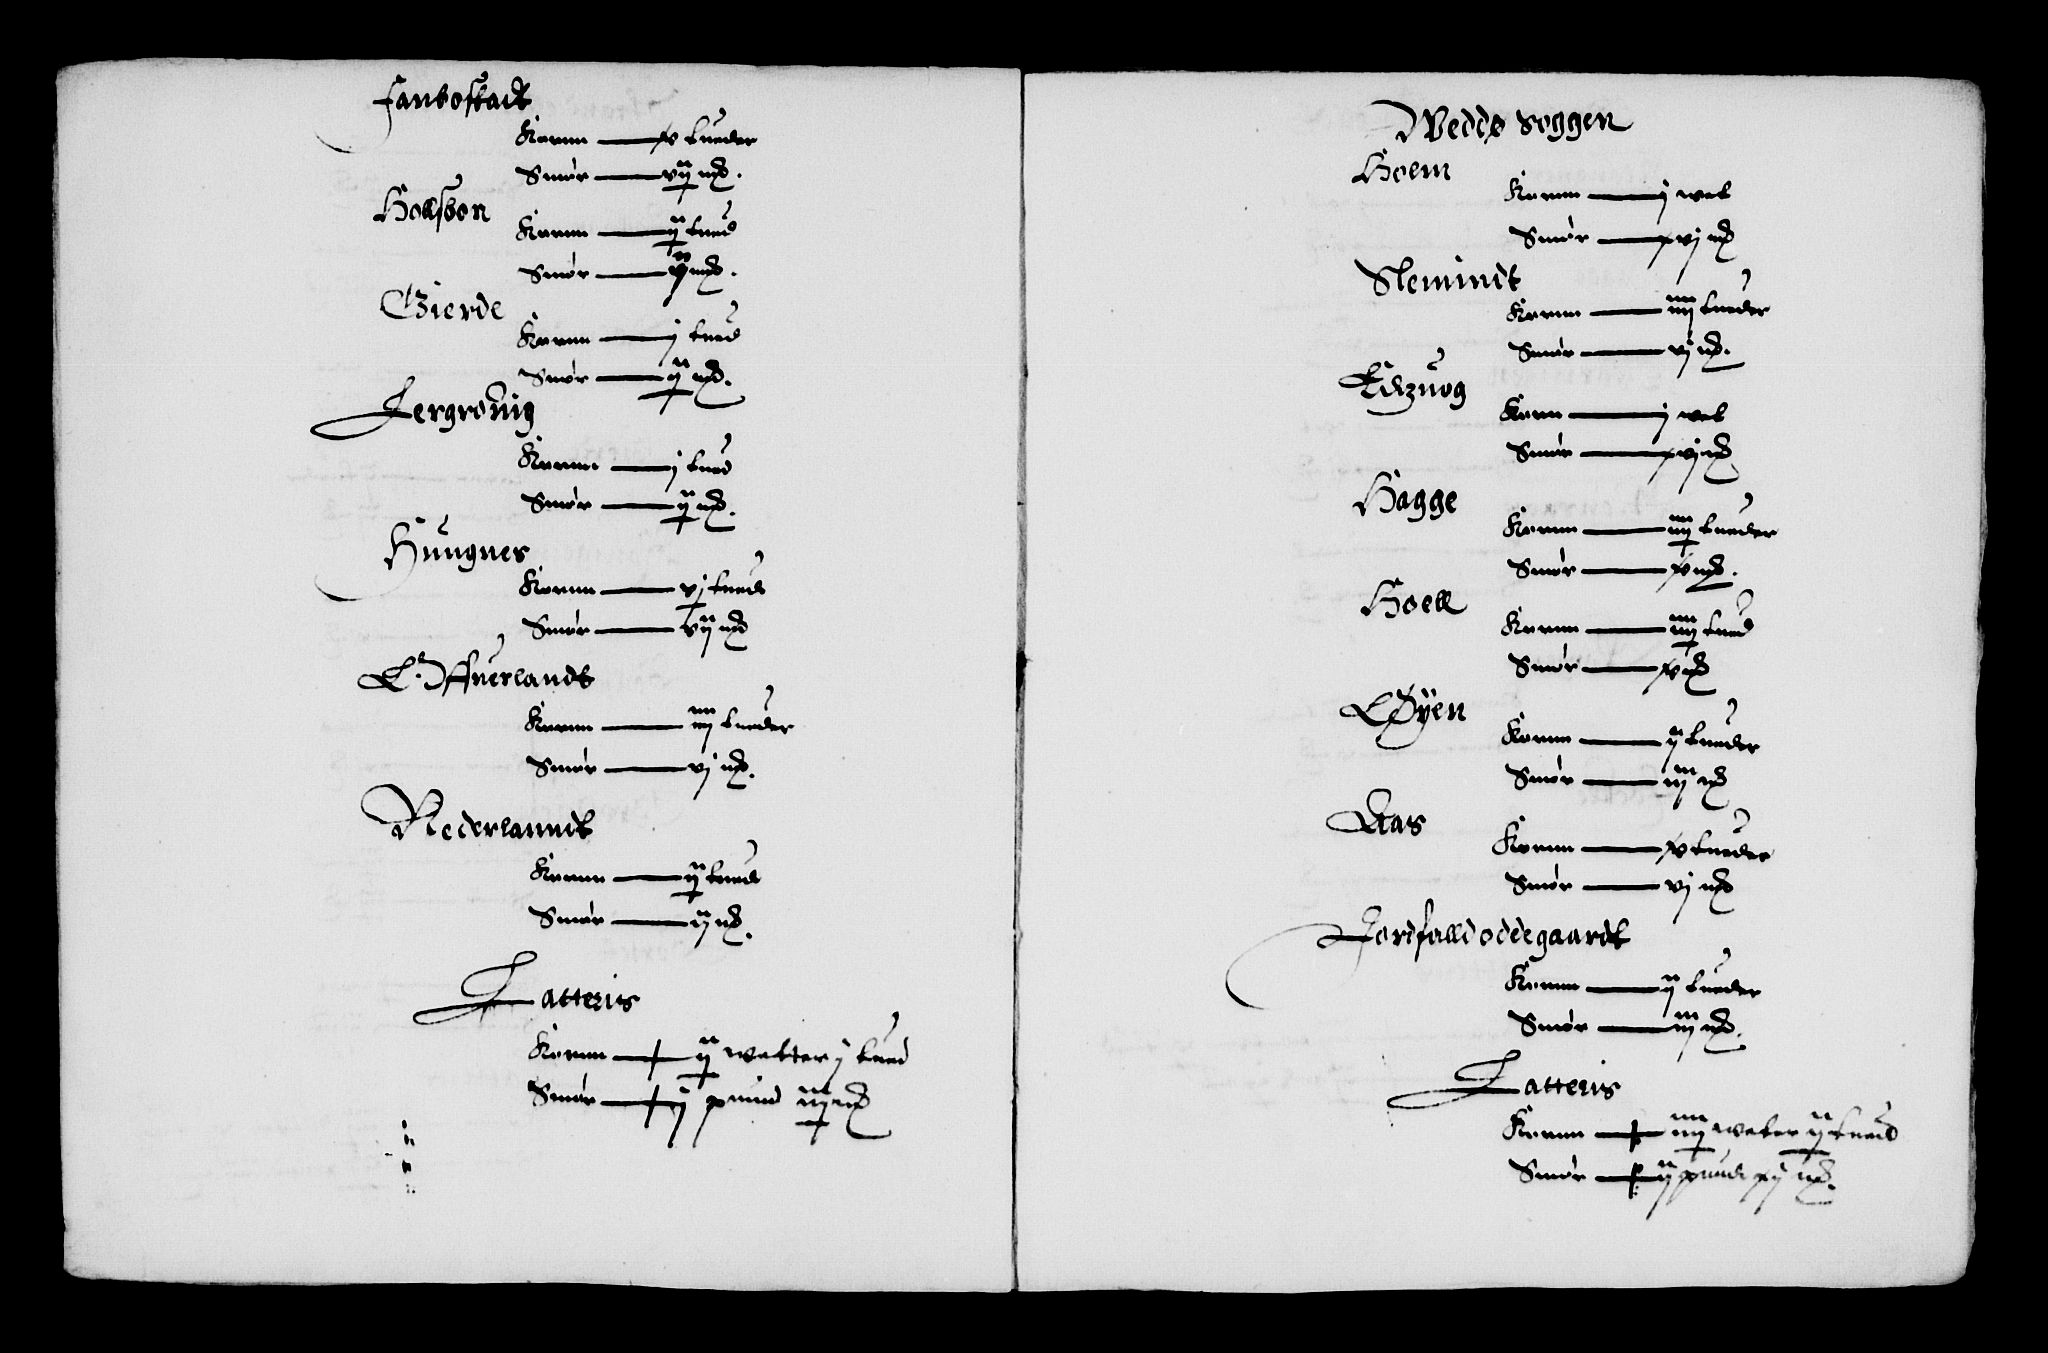 Fanbostadt
Kornn — v tunder
Smør — vij m₰.
Hollsbon
Kornn — ij tund
Smør — v m₰.
Gierde
Kornn — j tund
Smør — ij m₰.
Jergrönig
Kornn — j tund
Smør — ij m₰.
Hungnes
Kornn — vj tund
Smør — vij m₰
E. Offuerlandt
Kornn — iiij tunder
Smør — vj m₰.
Nederlanndt
Kornn — ij tund
Smør — ij m₰.
Latteris
Kornn — ij wetter j tund
Smør — ij pund iij m₰
Weddø soggen
Hoem
Kornn — j wet
Smør — xvj m₰
Slemindt
Kornn — iiij tunder
Smør — vj m₰.
Kornn — j wet
Smør — xvj m₰
Hagge
Kornn — iiij tunder
Smør — x m₰.
Hoell
Kornn — iiij tund
Smør — x m₰
Øyen
Kornn — ij tunder
Smør — iij m₰
Aas
Kornn — v tunder
Smør — vj m₰
Jordfalld oddegaardt
Kornn — ij tunder
Smør — iij m₰.
Latteris
Kornn — iiij weter ij tund
Smør — ij pund xij m₰.